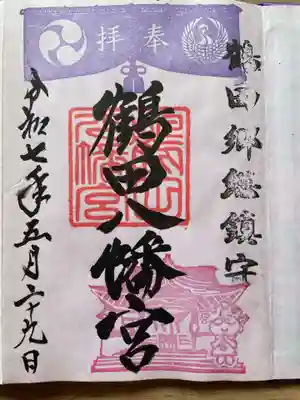 奉拝
鶴田郷総鎮守
鶴田八幡宮
令和七年五月二十九日